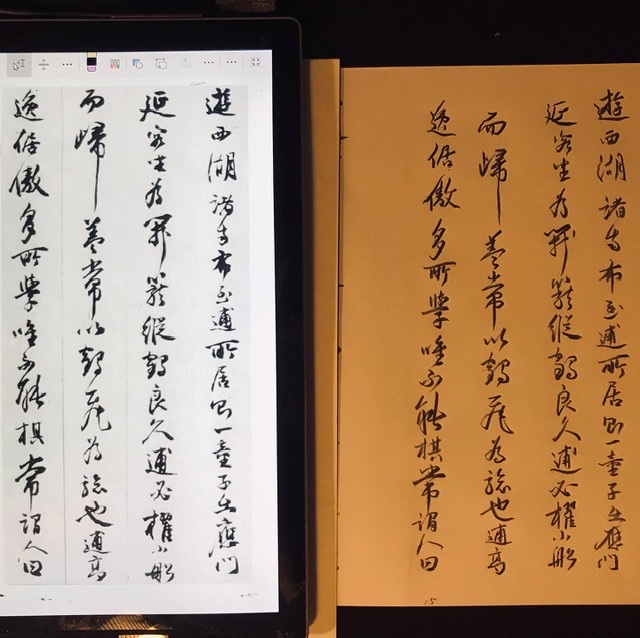 遊西湖諸寺有至逋所居則一童子出應門
延客坐為開籠縱鶴良久逋必櫂小船
而歸蓋常以鶴飛為驗也逋高
逸倨傲多所學唯不能棋常謂人曰
遊西湖諸寺有至逋所居則一童子出應門
延客坐為開籠縱鶴良久逋必櫂小船
而歸蓋常以鶴飛為驗也逋高
逸倨傲多所學唯不能棋常謂人曰
15